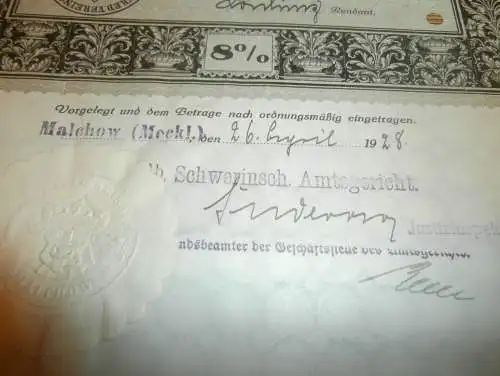 RED VEREIN
Rendant.
8%
Vorgelegt und dem Betrage nach ordnungsmäßig eingetragen.
Malchow (Meckl.), den 26. April 1928.
Schwerinsch. Amtsgericht.
Justizinspek
ndsbeamter der Geschäftsstelle des Amtsgerichts.
MALCHOW